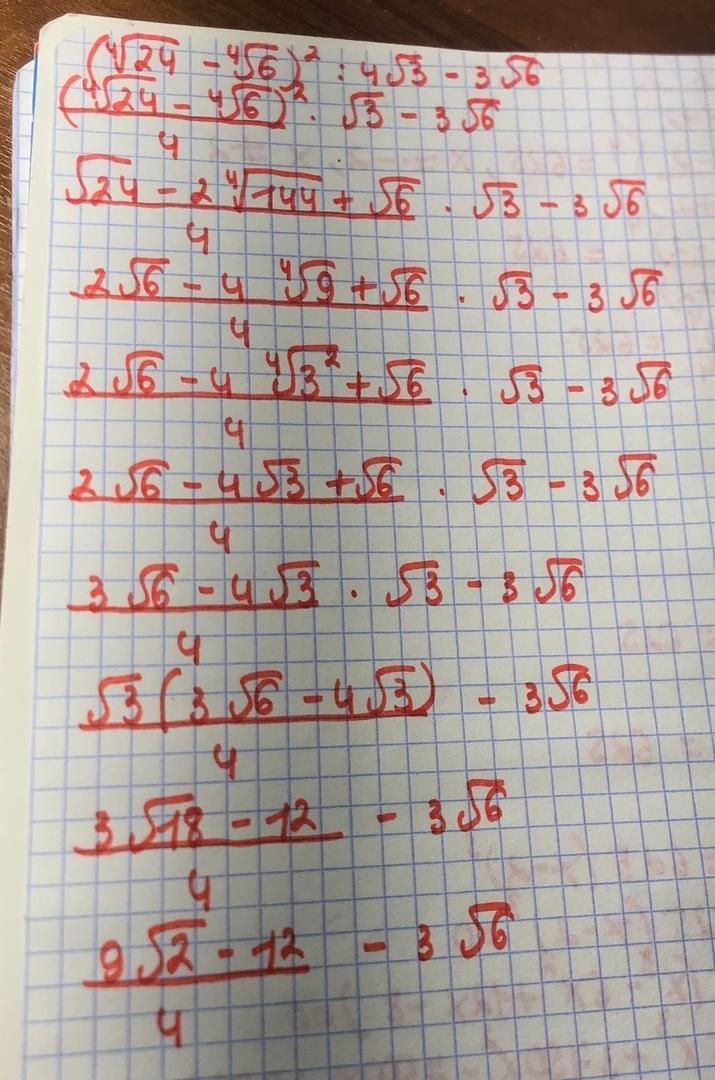 (⁴√24 - ⁴√6)² : 4√3 - 3√6
(⁴√24 - ⁴√6)² / 4 · √3 - 3√6
√24 - 2 ⁴√144 + √6 / 4 · √3 - 3√6
2√6 - 4 ⁴√9 + √6 / 4 · √3 - 3√6
2√6 - 4 ⁴√3² + √6 / 4 · √3 - 3√6
2√6 - 4√3 + √6 / 4 · √3 - 3√6
3√6 - 4√3 / 4 · √3 - 3√6
√3(3√6 - 4√3) / 4 - 3√6
3√18 - 12 / 4 - 3√6
9√2 - 12 / 4 - 3√6